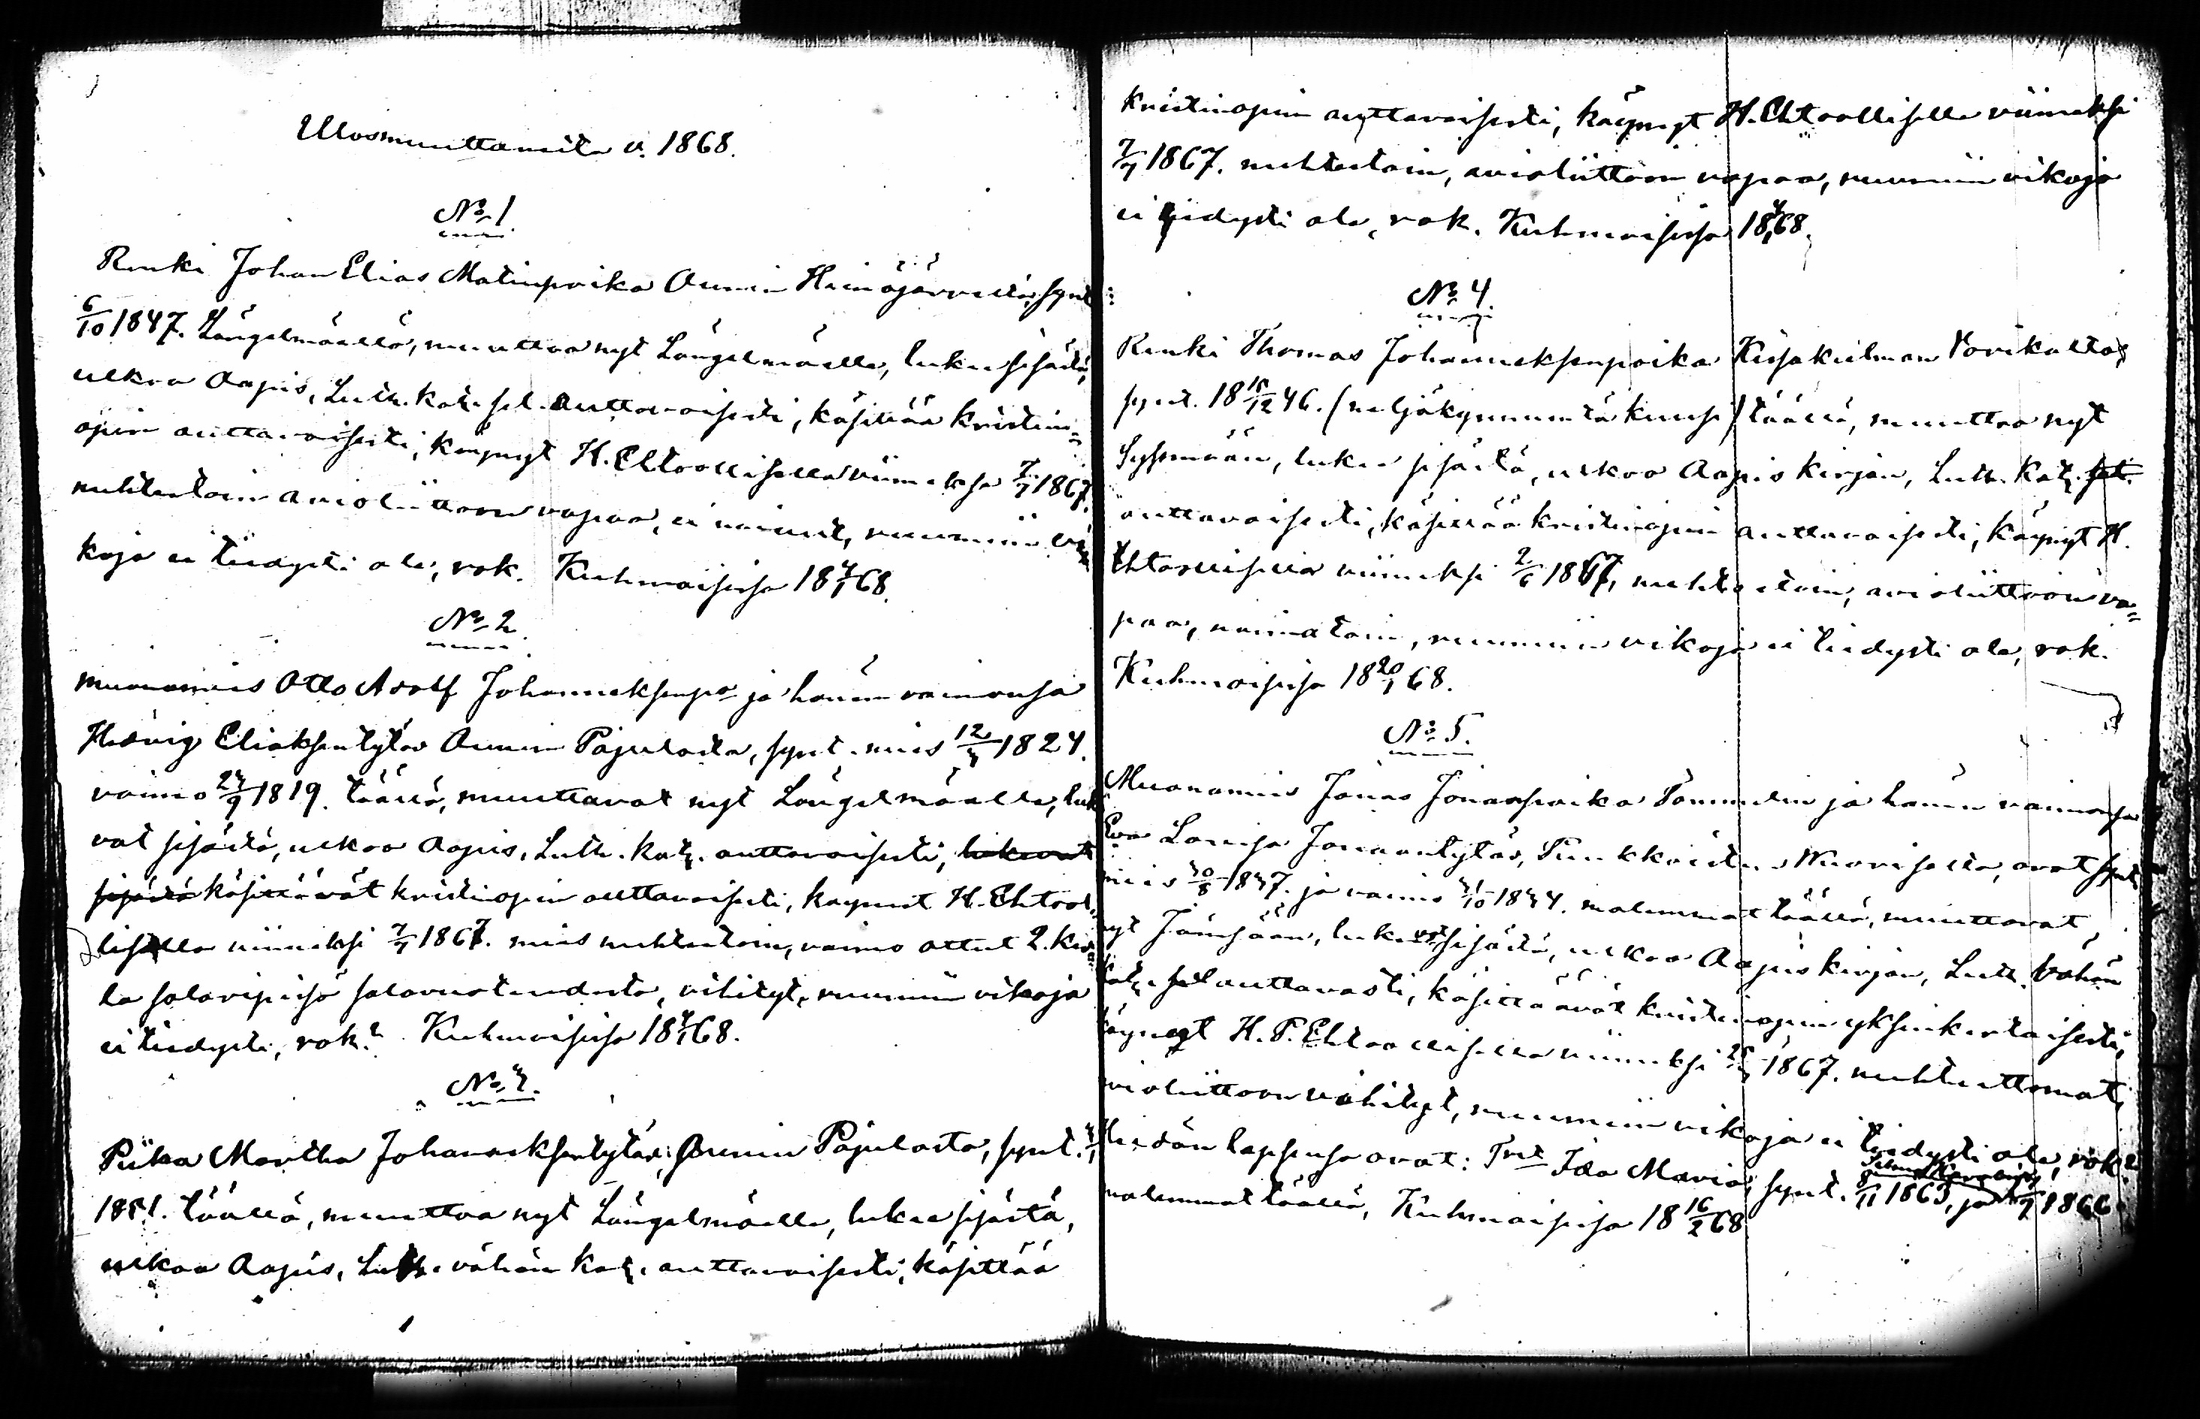 Ulosmuuttaneita v. 1868.
No 1
Renki Johan Elias Matinpoika Aunin Heinäjärveltä, synt.
6/10 1847. Längelmäellä, muuttaa nyt Längelmäelle, lukee sisästä,
ulkoa Aapis, Luth. kat. sel. auttavaisesti, käsittää kristin=
opin auttavaisesti, käynyt H. Ehtoollisella viimeksi 7/7 1867.
nuhteetoin avioliittoon vapaa, ei nainut, ruumiin vi=
koja ei tiedysti ole, rok. Kuhmoisissa 18 4/1 68.
No 2.
Muonamies Otto Adolf Johanneksenpo. ja hänen vaimonsa
Hedvig Eliaksentytär Aunin Pajulasta, synt. mies 12/3 1824.
vaimo 23/9 1819. täällä, muuttavat nyt Längelmäelle, luke
vat sisästä, ulkoa Aapis, Luth. kat. auttavaisesti, lukevat
sisästä käsittävät kristinopin auttavaisesti, käynet H. Ehtool=
lisella viimeksi 7/7 1867. mies nuhteetoin, vaimo ollut 2. ker
la salavipeisö salavuoteudesta, vihityt, ruumiin vikoja
ei tiedysti, rok. Kuhmoisissa 18 4/1 68.
No 3.
Piika Martha Johanneksentytär, Aunin Pajulasta, synt.
1851. täällä, muuttaa nyt Längelmäelle, lukee sisästä,
ulkoa Aapis, Luth. vähän kat. auttavaisesti, käsittää
kristinopin auttavaisesti, käynyt H. Ehtoollisella viimeksi
7/7 1867. nuhteetoin, avioliittoon vapaa, ruumiin vikoja
ei tiedysti ole, rok. Kuhmoisissa 18 4/1 68.
No 4.
Renki Thomas Johanneksenpoika Kissakulman Torikalta,
synt. 18 15/12 46. (neljäkymmentä kuusi) täällä, muuttaa nyt
Syssmään, lukee sisästä, ulkoa Aapis kirjan, Luth. Kat. sel.
auttavaisesti, käsittää kristinopin auttavaisesti, käynyt H.
Ehtoollisella viimeksi 2/6 1867, nuhteetoin, avioliittoon va=
paa, naimatoin, ruumiin vikoja ei tiedysti ole, rok.
Kuhmoisissa 18 20/1 68.
No 5.
Muonamies Jonas Jonaspoika Tommelin ja hänen vaimonsa
Eva Lovisa Joonaantytär, Nuorisalta, ovat synt.
mies 30/8 1837. ja vaimo 31/10 1834. molemmat täällä, muuttavat
nyt Jämsään, lukevat sisästä, ulkoa Aapis kirjan, Luth. vähän
kat. sel auttavasti, käsittäävät kristinopin yksinkertaisesti,
käynyt H. P. Ehtoollisella viimeksi 1867. nuhteettomat,
avioliittoon vihityt, ruumiin vikoja ei tiedysti ole, rok.
Heidän lapsensa ovat: Ida Maria, synt. 8/11 1863, ja 1866
molemmat täällä, Kuhmoisissa 18 16/2 68